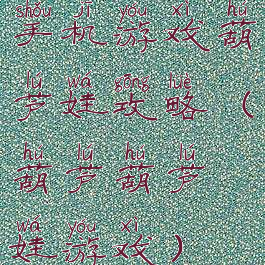 shǒu jī yóu xì hú
手机游戏葫
lú wá gōng lüè
芦娃攻略（
hú lú hú lú
葫芦葫芦
wá yóu xì
娃游戏）